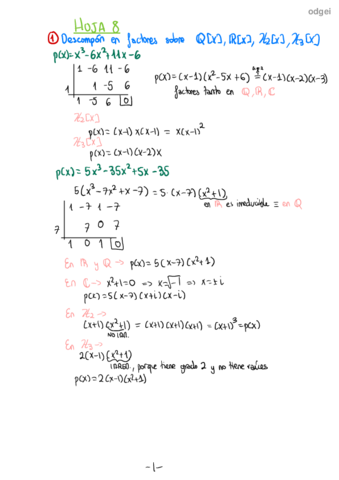 odgei
HOJA 8
① Descompón en factores sobre Q[x], R[x], Z₂[x], Z₃[x]
p(x)=x³-6x²+11x-6
1 -6 11 -6
1 1 -5 6
1 -5 6 0
p(x)=(x-1)(x²-5x+6) = (x-1)(x-2)(x-3)
factores tanto en Q, R, C
Z₂[x]
p(x)=(x-1)x(x-1) = x(x-1)²
Z₃[x]
p(x)=(x-1)(x-2)x
p(x)= 5x³-35x²+5x-35
5(x³-7x²+x-7)=5(x-7)(x²+1)
en R es irreducible = en Q
1 -7 1 -7
7 7 0 7
1 0 1 0
En R y Q → p(x)=5(x-7)(x²+1)
En C → x²+1=0 → x=√-1 → x=±i
p(x)=5(x-7)(x+i)(x-i)
En Z₂ →
(x+1)(x²+1) = (x+1)(x+1)(x+1)=(x+1)³=p(x)
NO IRR.
En Z₃ →
2(x-1)(x²+1)
IRRED, porque tiene grado 2 y no tiene raíces
p(x)=2(x-1)(x²+1)
-1-